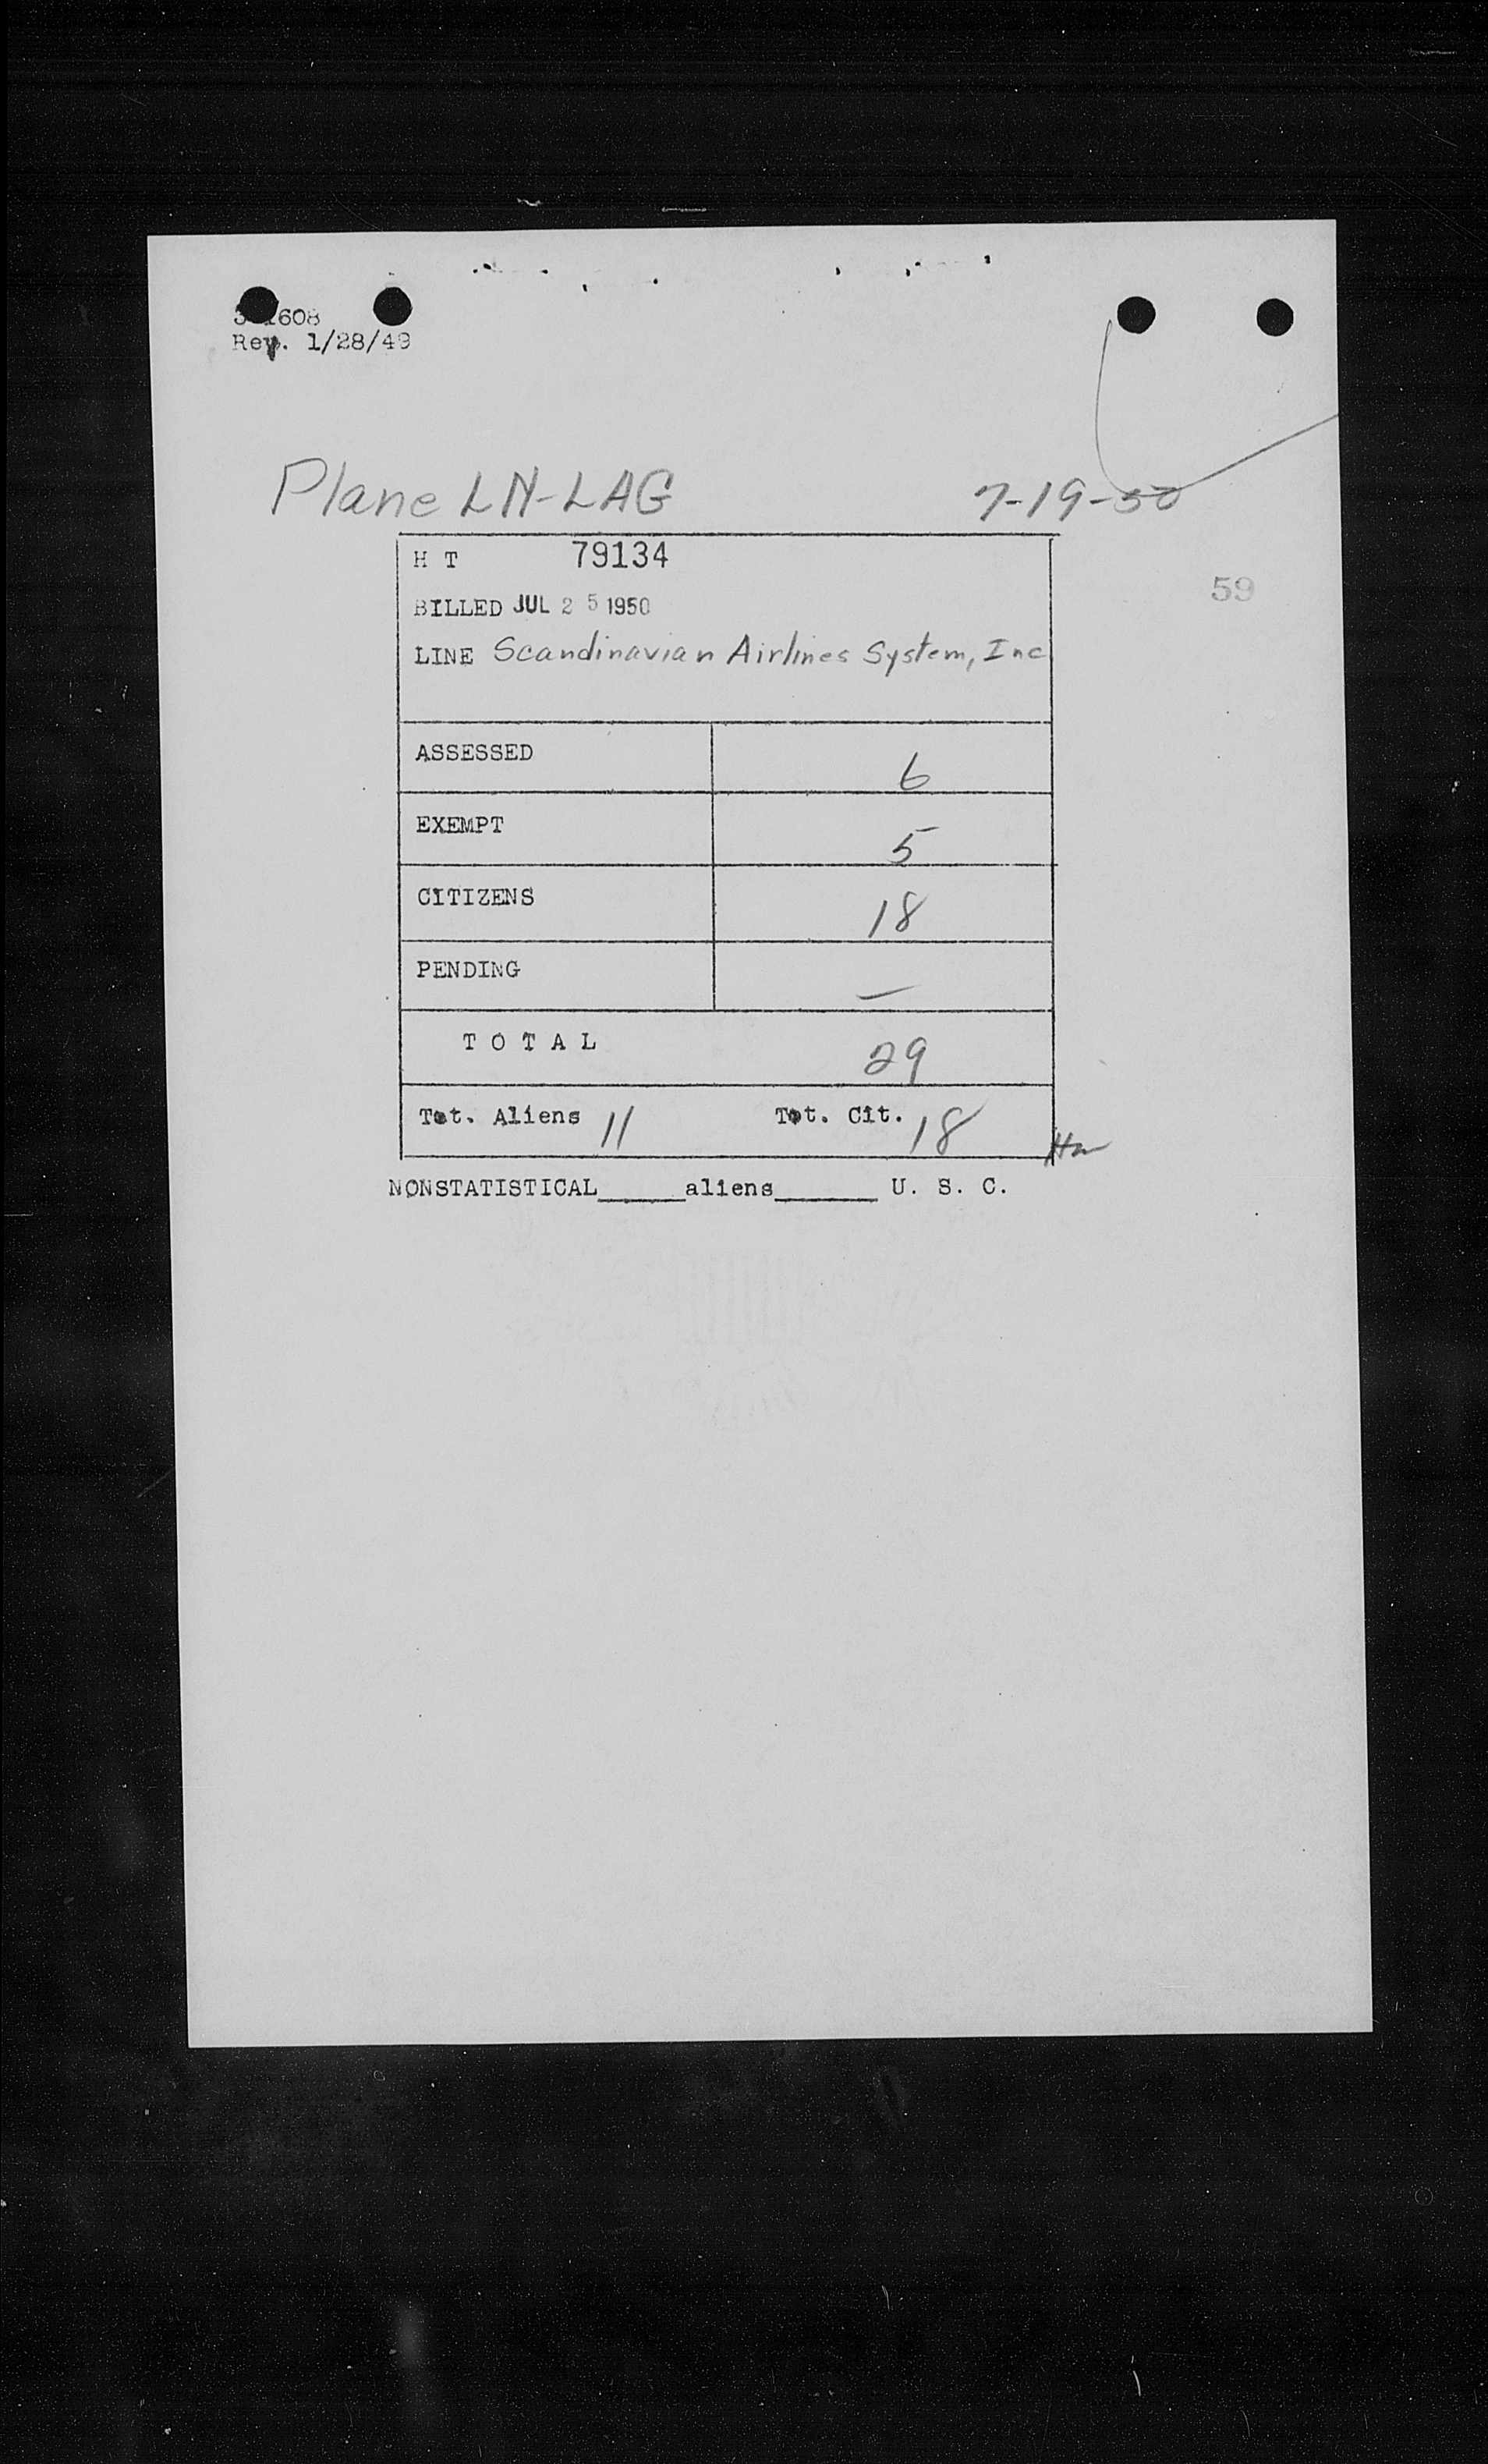 608
Rev. 1/28/49
Plane LN-LAG 7-19-50
H T 79134
59
BILLED JUL 25 1950
LINE Scandinavian Airlines System, Inc
ASSESSED 6
EXEMPT 5
CITIZENS 18
PENDING —
T O T A L 29
Tot. Aliens 11 Tot. Cit. 18
NONSTATISTICAL_____aliens______ U. S. C.